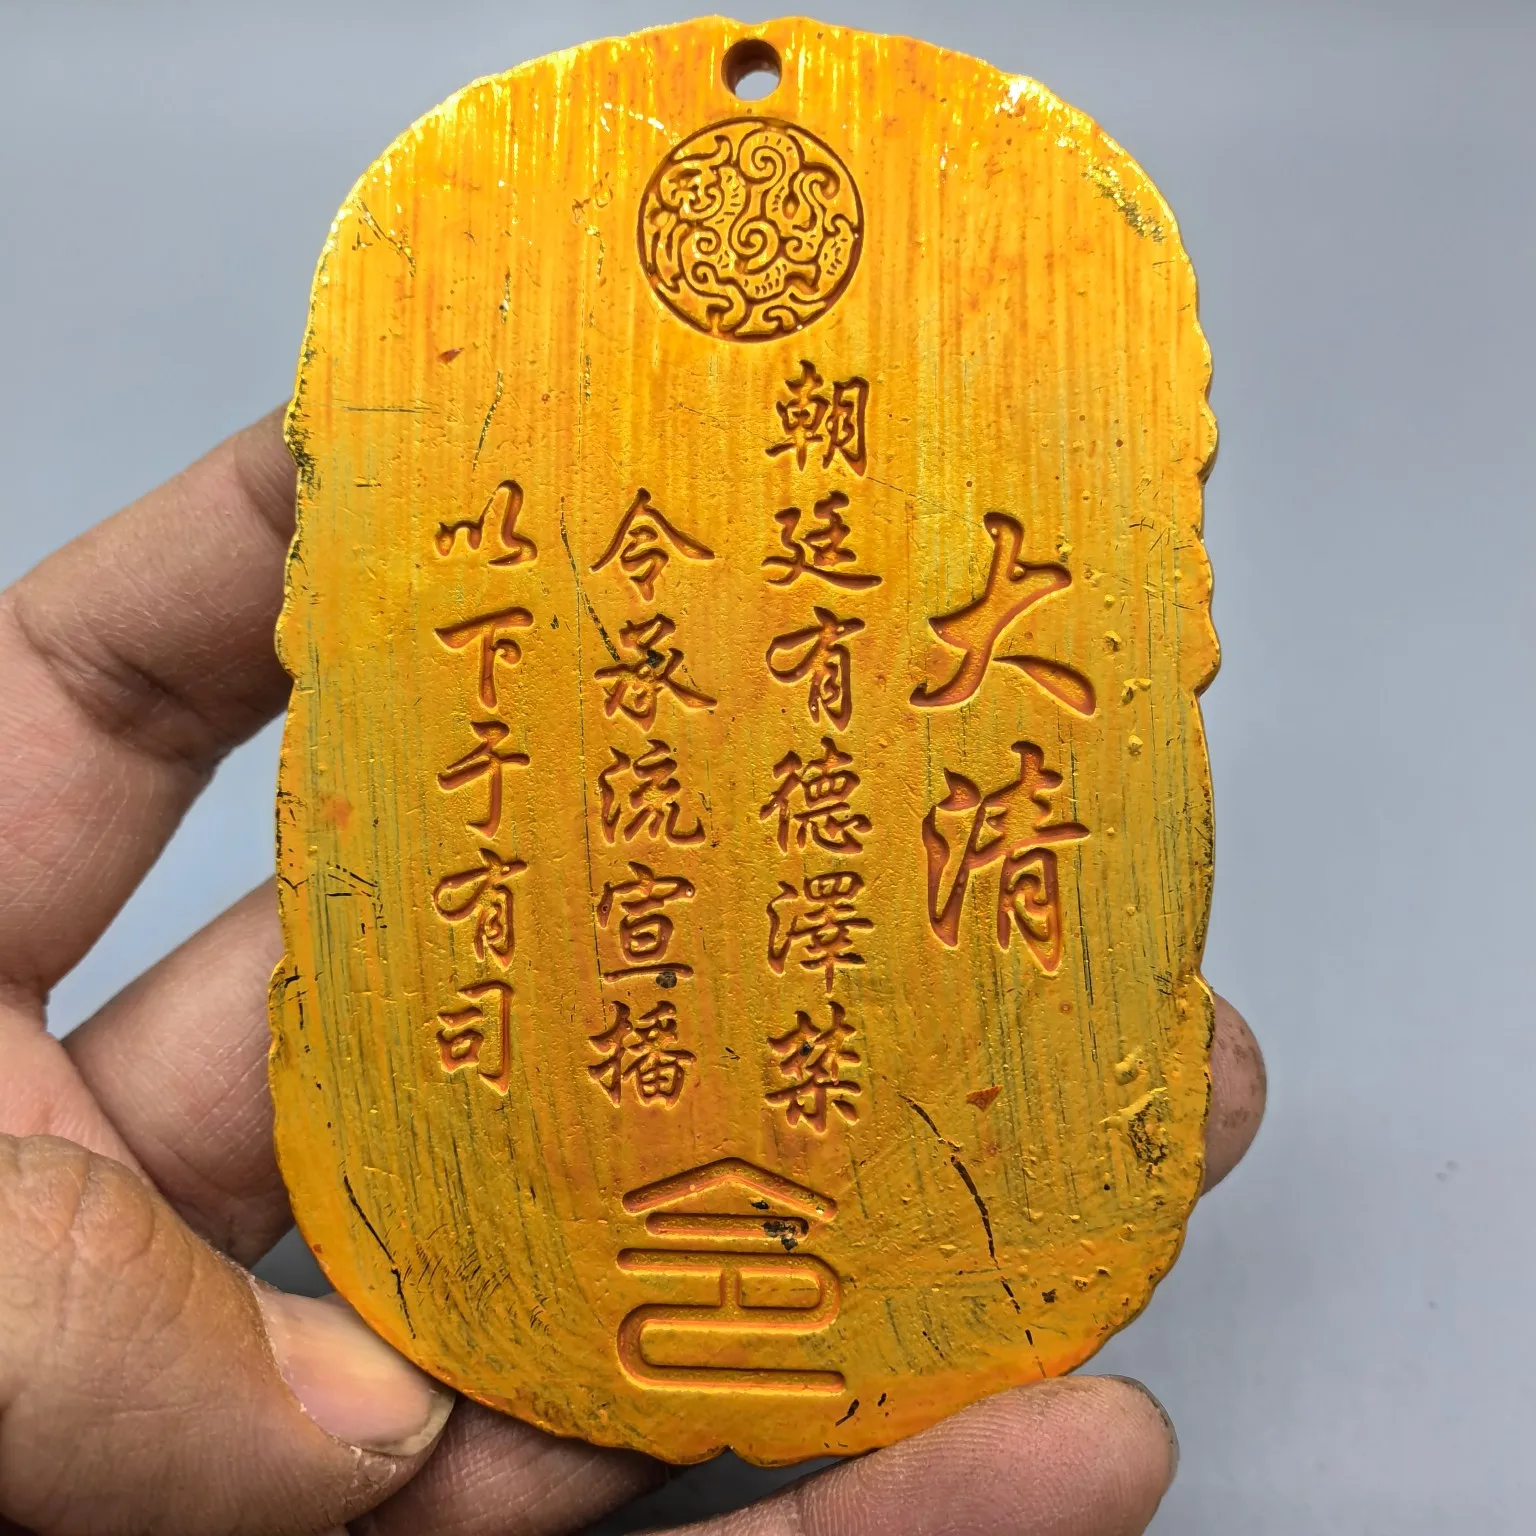 大清
朝廷有德澤禁
令承流宣播
以下于有司
令